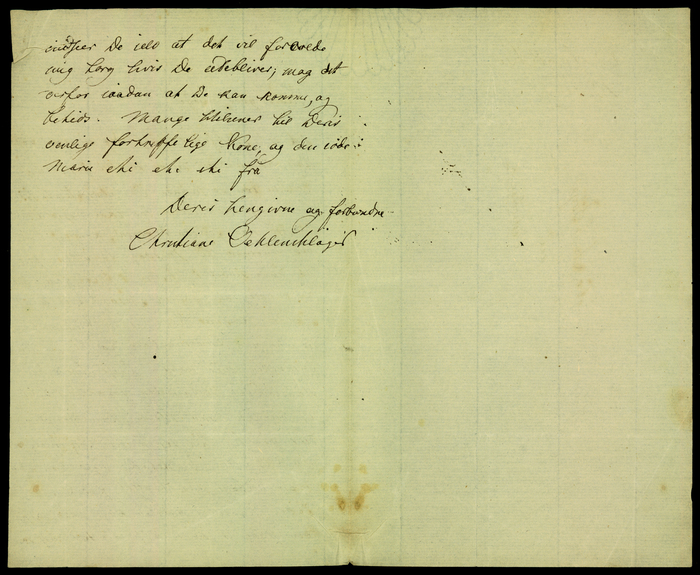 indseer De selv at det vil forvolde
mig Sorg hvis De udebliver; mag det
derfor saadan at De kan komme, og
betids. Mange hilsener til Deres
venlige fortræffelige Kone, og den søde
Marie etc etc etc fra
Deres hengivne og forbundne
Christiane Oehlenschläger